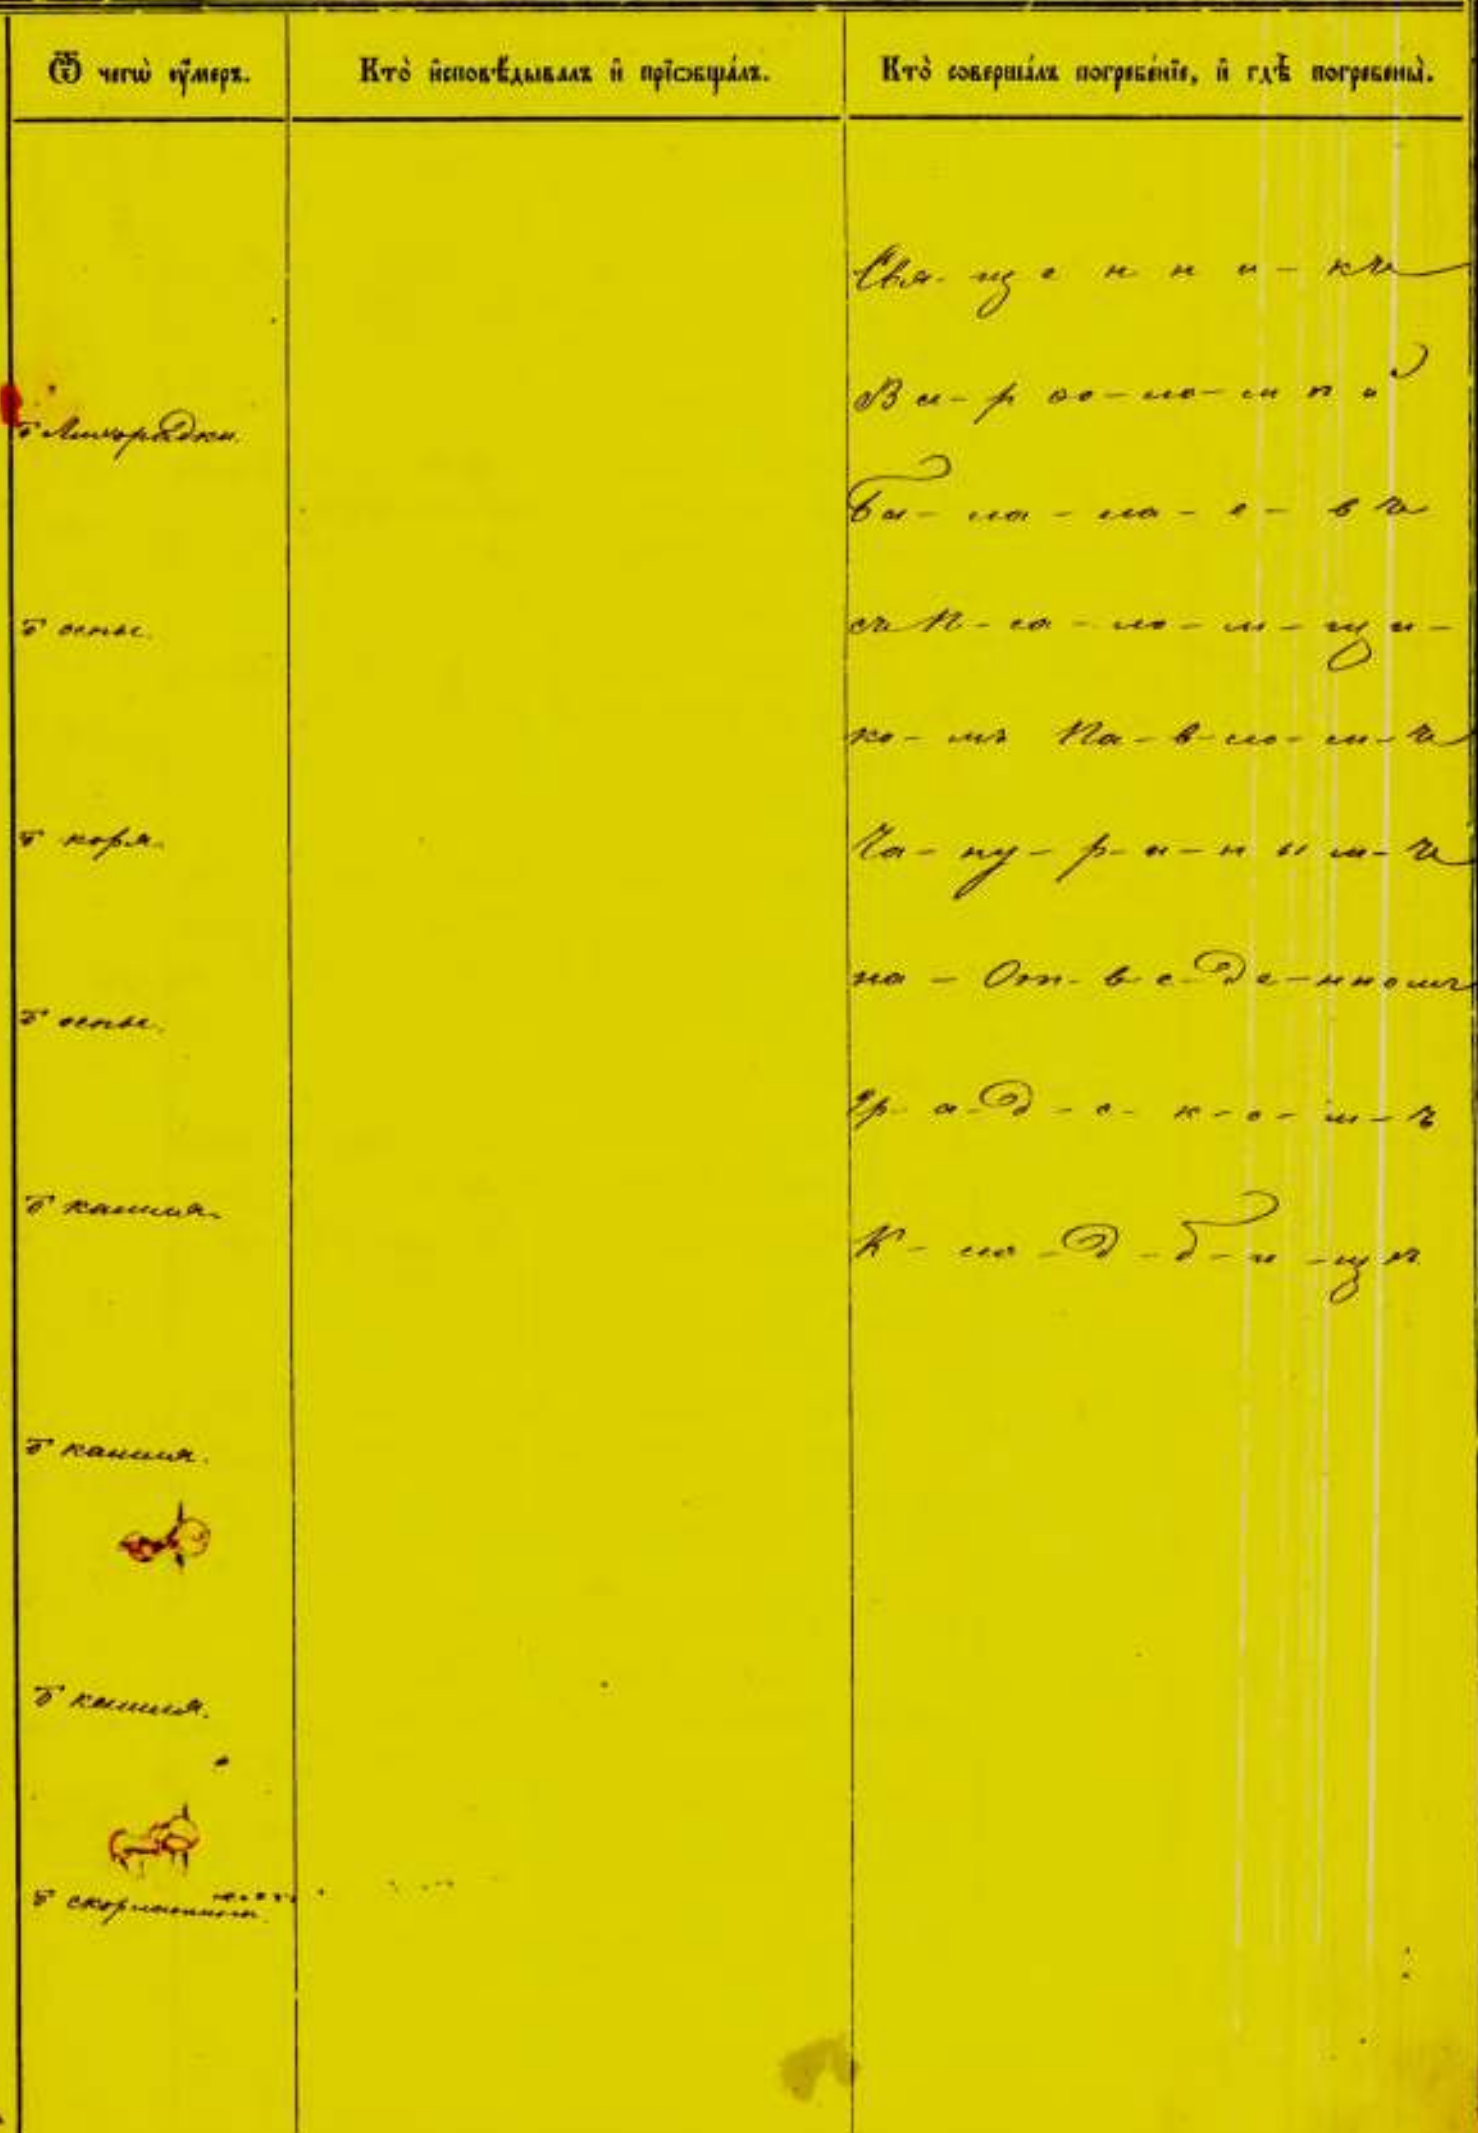 Ѿ чегѡ ᲂу҆́меръ.
Кто̀ и҆сповѣ́дывалъ и҆ прїѻбща́лъ.
Кто̀ соверша́лъ погребе́нїе, и҆ гдѣ̀ погребены̀.
Свя-щ е н н и - къ
Ва-р ѳо-ло-м ѣ й
Ба-ла-ла-е-въ
съ П-са-ло-м-щи-
ко-мъ Па-в-ло-м-ъ
Ча-пу-р-и-н ы м-ъ
на - От-в е-де-нномъ
Гр-а-д-с-к-о-м-ъ
К-ла-д-б-и-щѣ
Ѿ Лихорадки.
Ѿ оспы.
Ѿ коря.
Ѿ оспы.
Ѿ кашля.
Ѿ кашля.
Ѿ кашля.
Ѿ